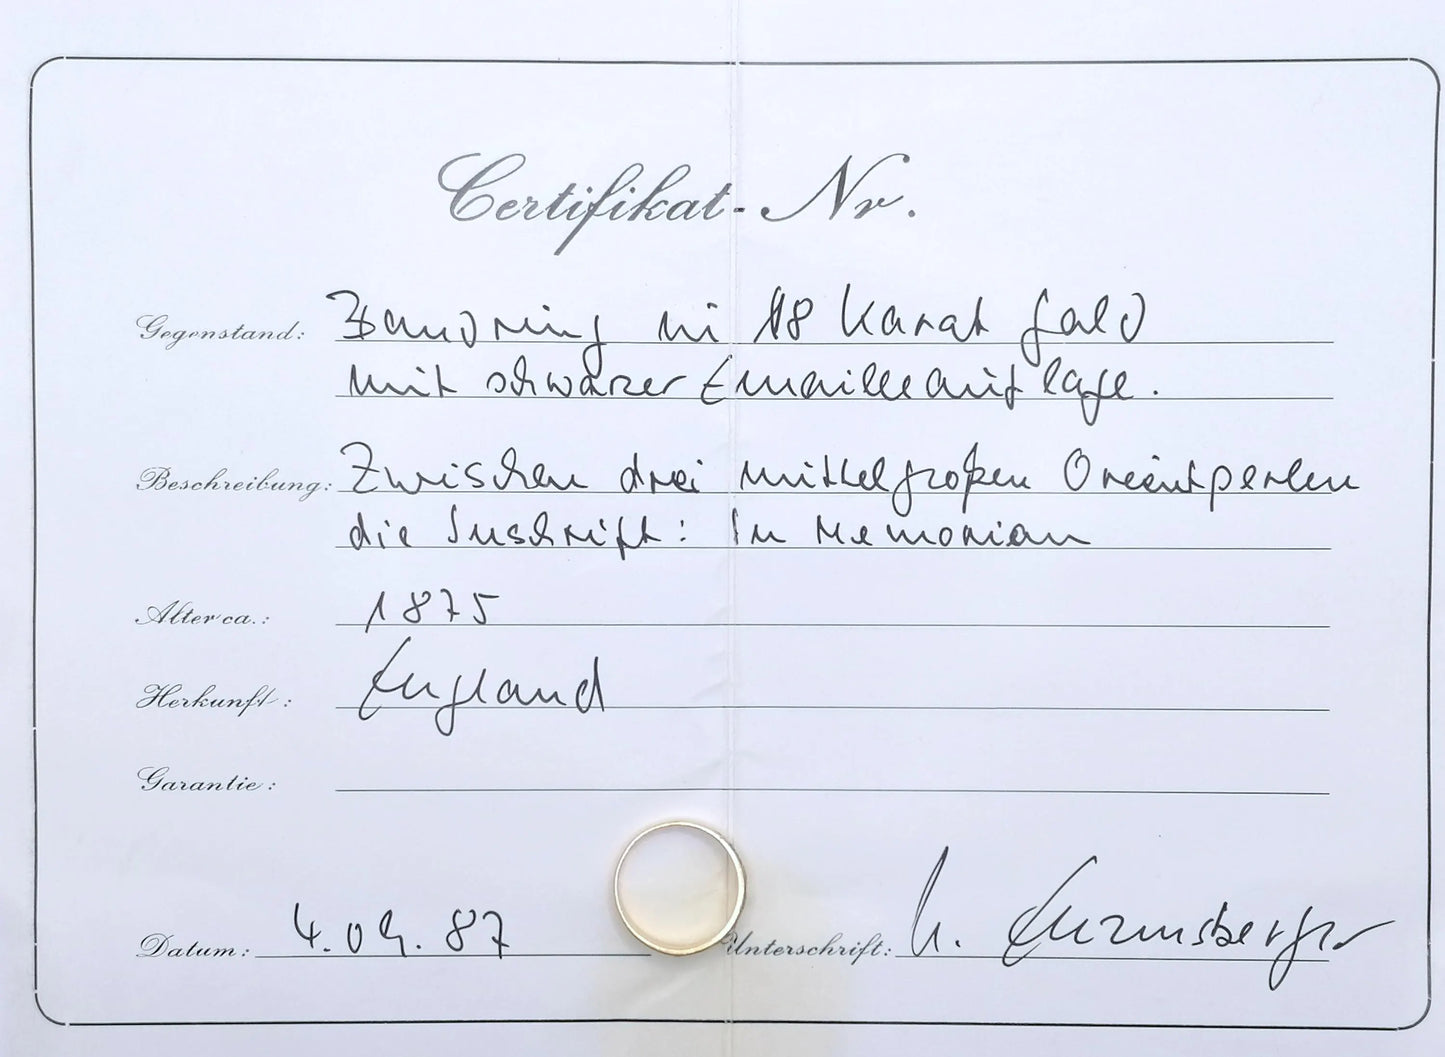 Certifikat-Nr.
Gegenstand: Bandring in 18 Karat Gold
mit schwarzer Emailleauflage.
Beschreibung: Zwischen drei mittelgroßen Orientperlen
die Inschrift: In Memorian
Alter ca.: 1875
Herkunft: England
Garantie:
Datum: 4.09.87 Unterschrift: